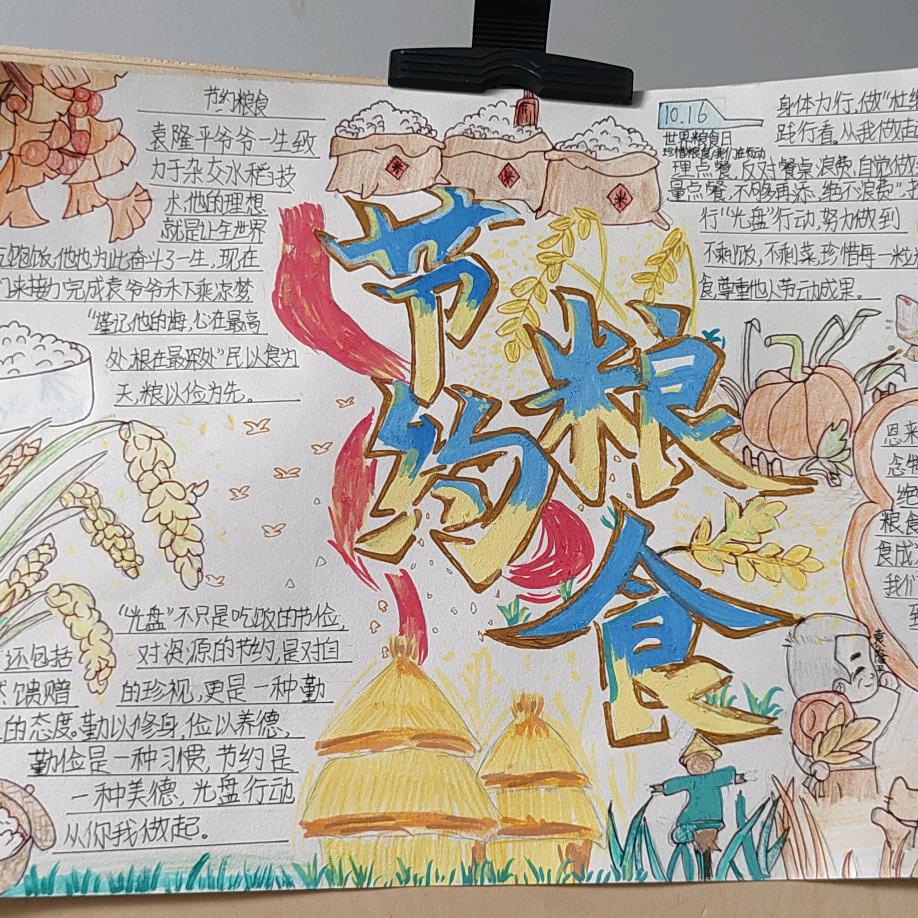 节约粮食
袁隆平爷爷一生致
力于杂交水稻技
术,他的理想
就是让全世界
吃饱饭,他也为此奋斗了一生,现在
来接力完成袁爷爷禾下乘凉梦
"谨记他的梅,心在最高
处,根在最深处"民以食为
天,粮以俭为先。
"光盘"不只是吃饭的节俭,
还包括 对资源的节约,是对自
然馈赠 的珍视,更是一种勤
的态度。勤以修身,俭以养德,
勤俭是一种习惯,节约是
一种美德,光盘行动
从你我做起。
节约
粮食
米
米
米
10.16
世界粮食日
珍惜粮食,我们在行动
身体力行,做"杜绝
践行者。从我做起
理点餐,反对餐桌浪费,自觉做
量点餐,不够再添,绝不浪费"
行"光盘"行动,努力做到
不剩饭,不剩菜,珍惜每一粒
食,尊重他人劳动成果。
恩来
念物
绝
粮食
食成
我们
到
袁隆平